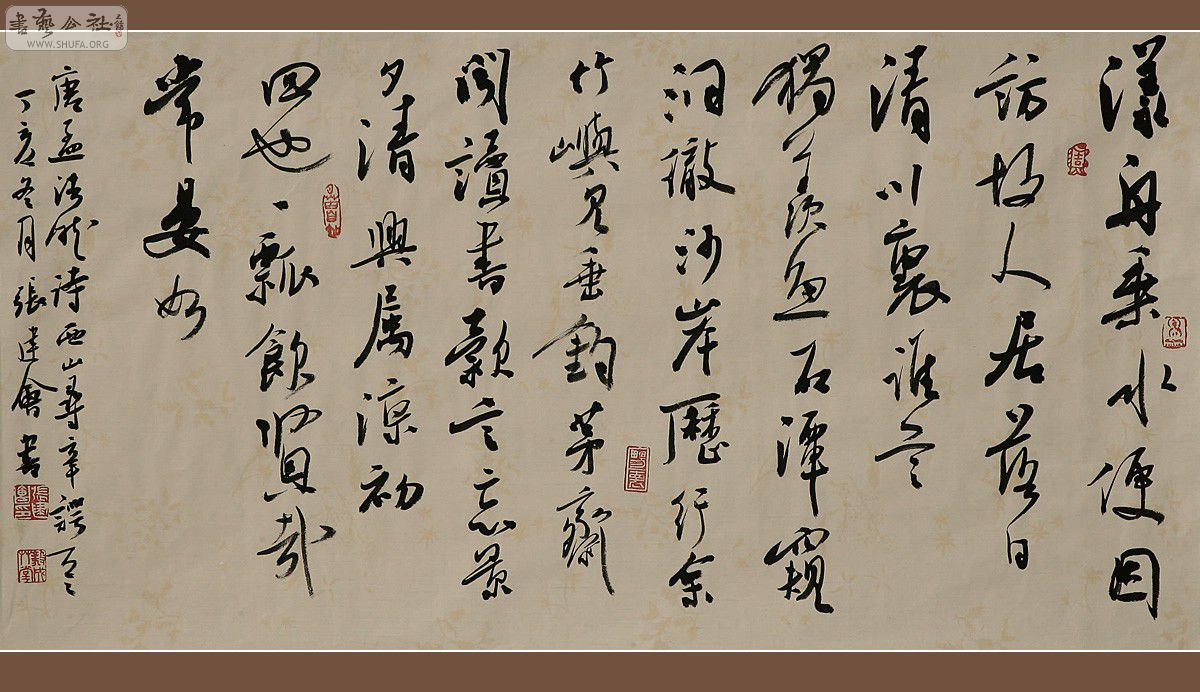 書藝公社
WWW.SHUFA.ORG
漾舟乘水便因
訪故人居落日
清川裏誰言
獨羨魚石潭窺
洞徹沙岸歷行余
竹嶼見垂釣茅齋
聞讀書款言忘景
夕清興屬涼初
回也一瓢飲賢哉
常晏如
唐孟浩然詩西山尋辛諤
丁亥冬月張建會書